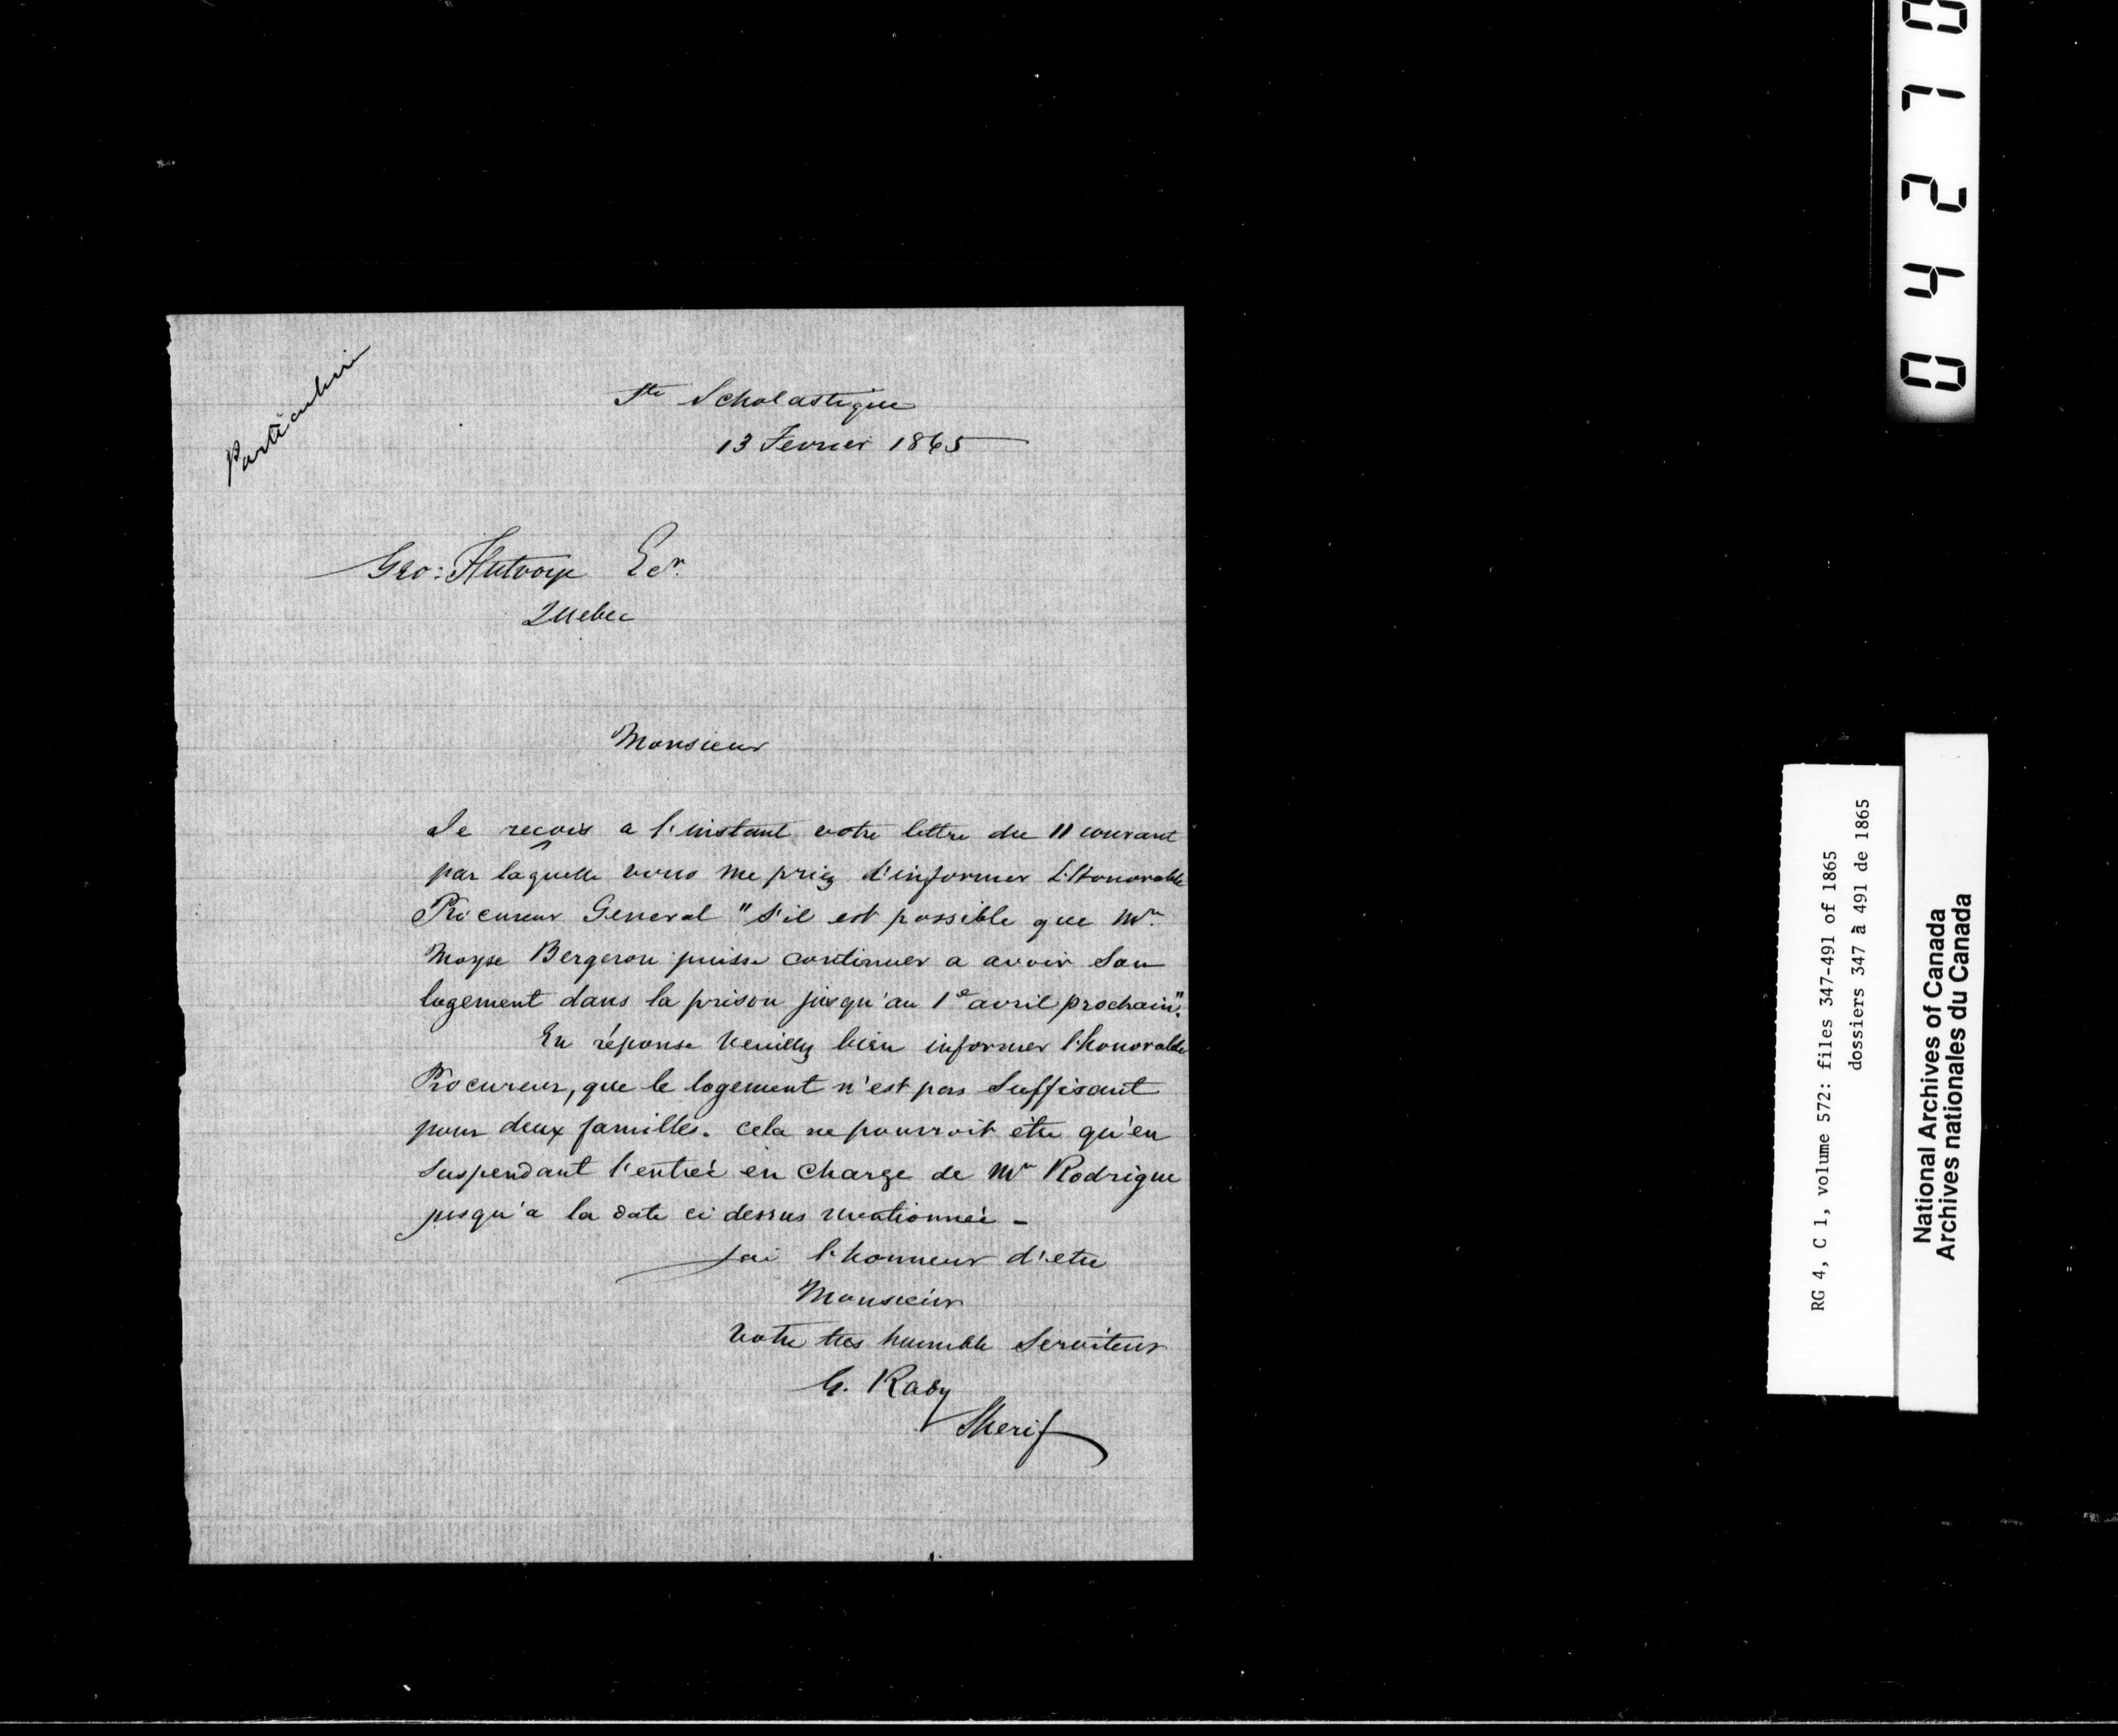 Particulier
Ste Scholastique
13 Fevrier 1865
Geo: Futvoye Ecr.
Quebec
Monsieur
Je recois a l'instant votre lettre du 11 courant
par laquelle vous me priez d'informer L'Honorable
Procureur General "s'il est possible que Mr.
Moyse Bergeron puisse continuer a avoir son
logement dans la prison jusqu'au 1e avril prochain".
En réponse veuillez bien informer l'honorable
Procureur, que le logement n'est pas suffisant
pour deux familles. Cela ne pourroit être qu'en
suspendant l'entreé en charge de Mr Rodrigue
jusqu'a la date ci dessus mentionneé -
J'ai l'honneur d'etre
Monsieur
Votre tres humble Serviteur
G. Raby
Sherif
04270
RG 4, C 1, volume 572: files 347-491 of 1865
dossiers 347 à 491 de 1865
National Archives of Canada
Archives nationales du Canada